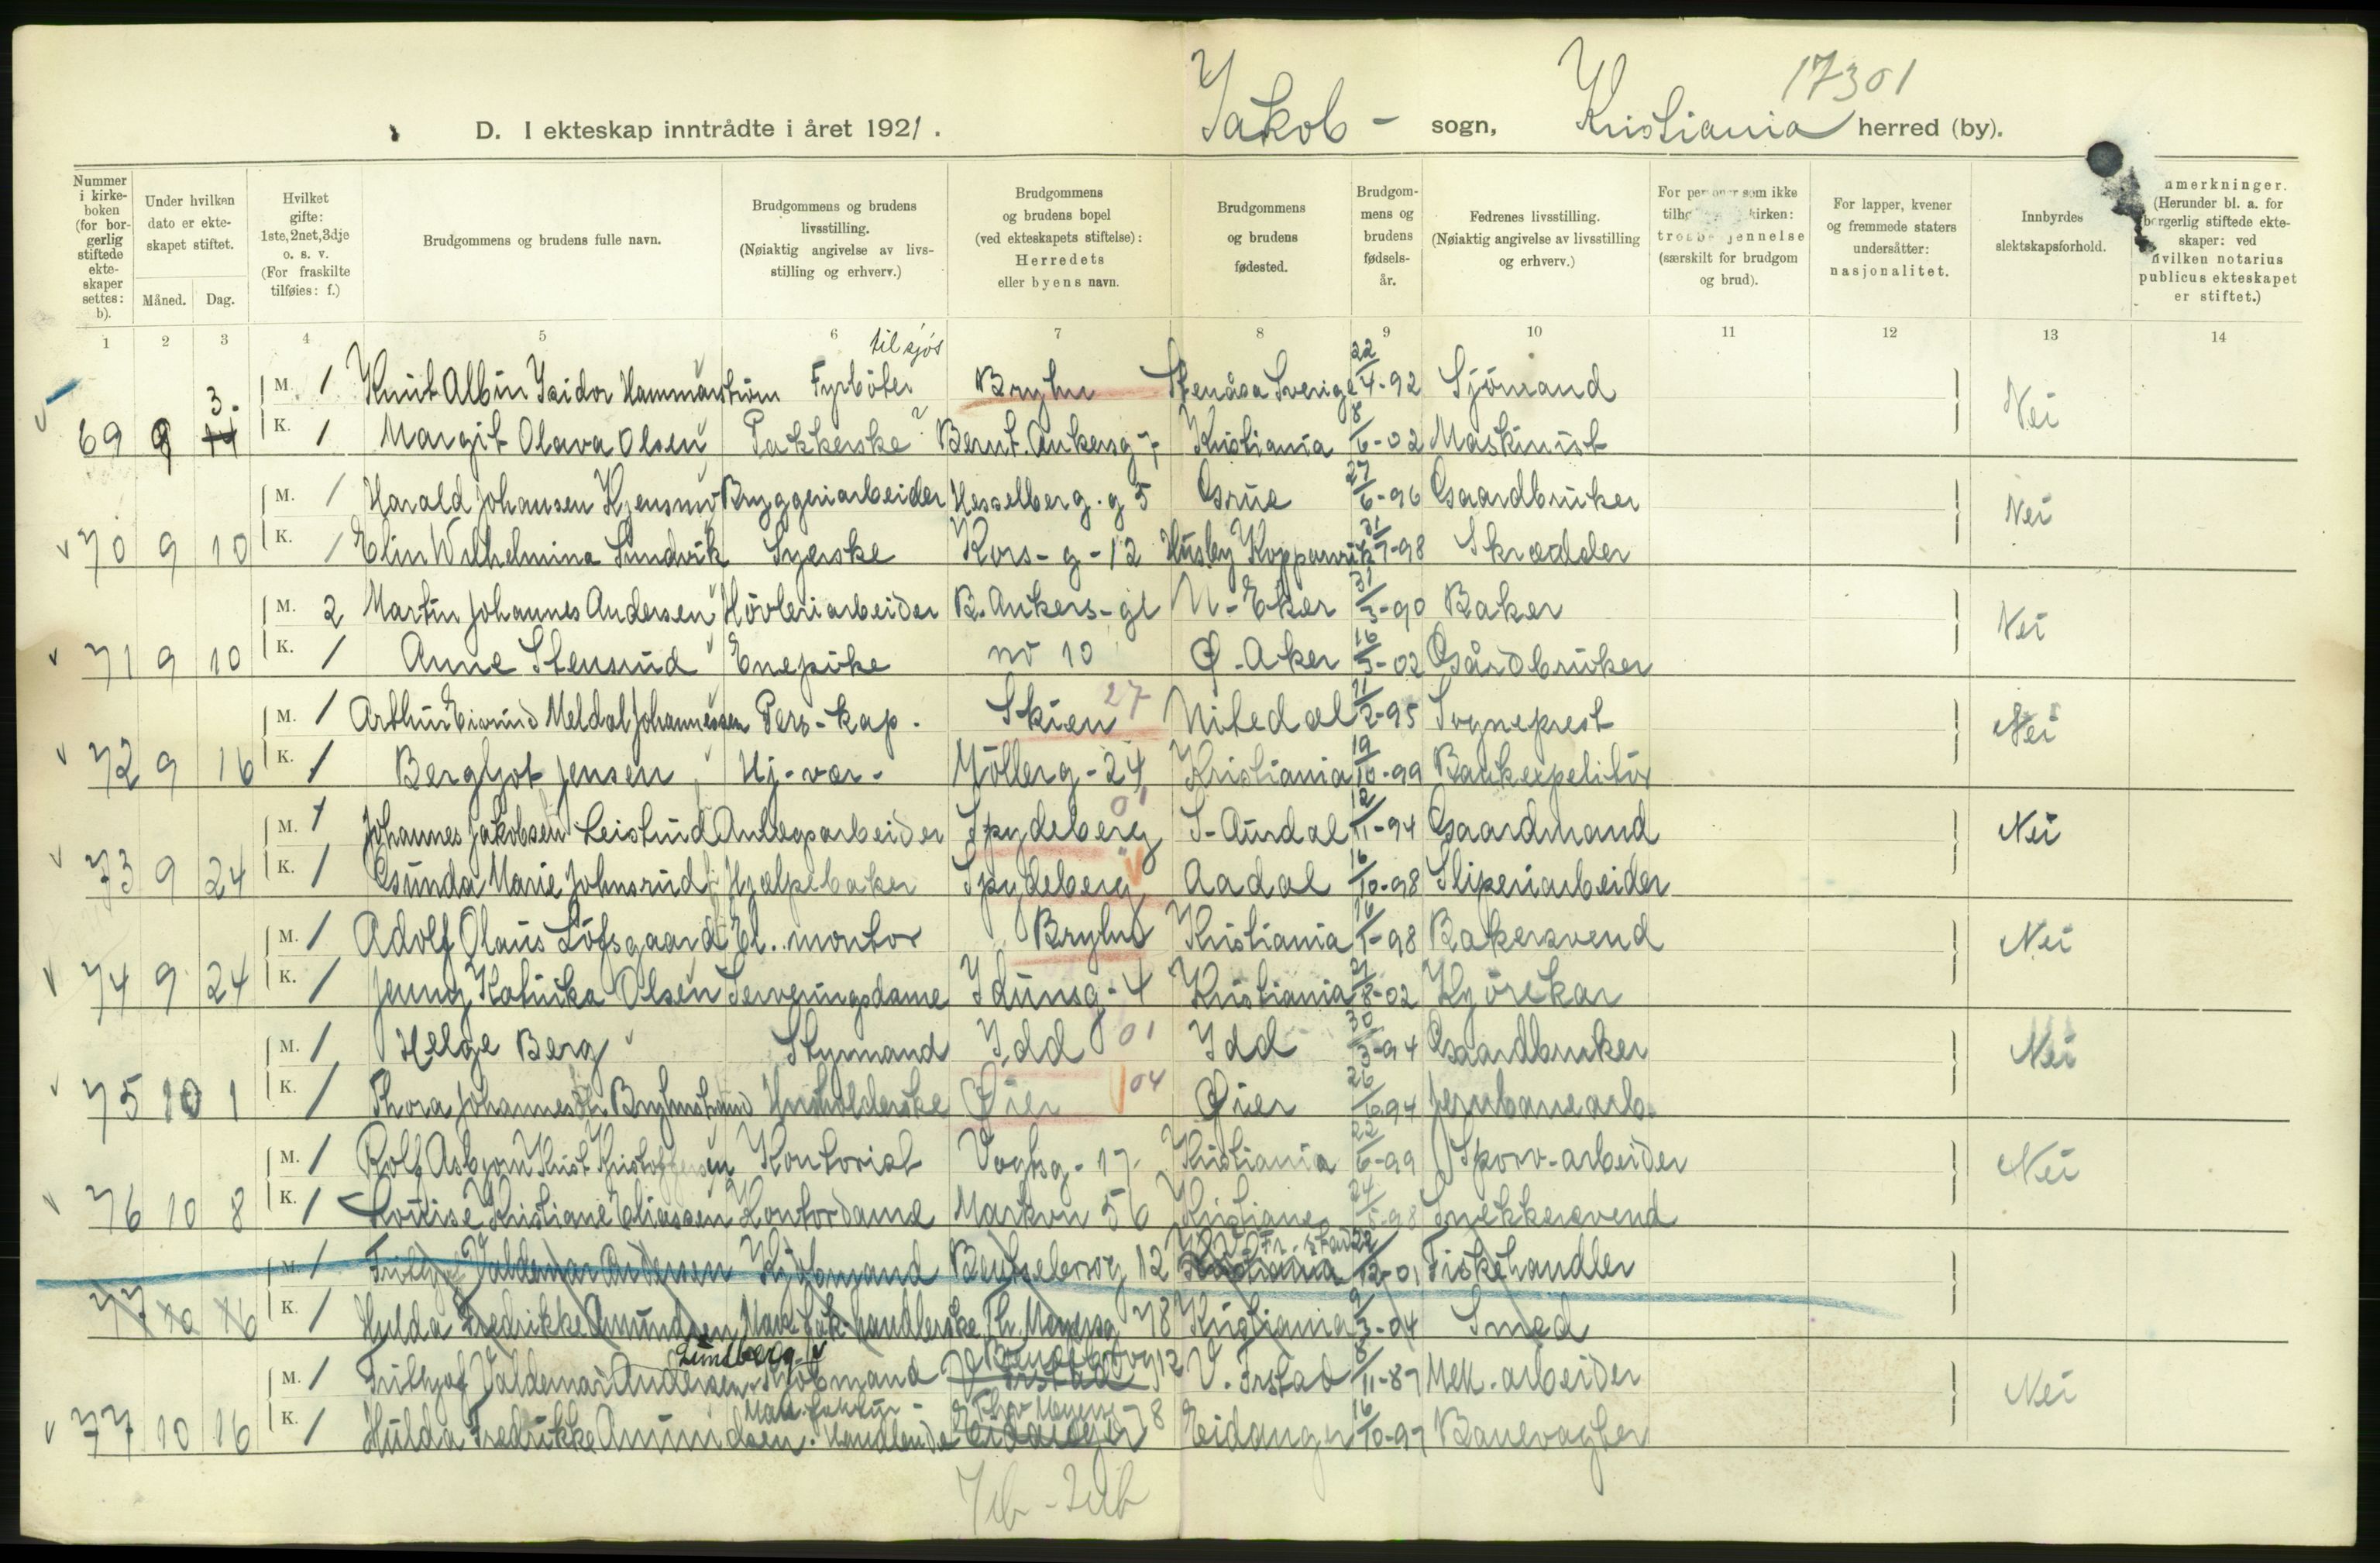 17301
D. I ekteskap inntrådte i året 1921. Jakob - sogn, Kristiania herred (by).
Nummer i kirkeboken (for borgerlig stiftede ekteskaper settes: b).
Under hvilken dato er ekteskapet stiftet.
Måned. Dag.
Hvilket gifte: 1ste, 2net, 3dje o. s. v. (For fraskilte tilføies: f.)
Brudgommens og brudens fulle navn.
Brudgommens og brudens livsstilling. (Nøiaktig angivelse av livsstilling og erhverv.)
Brudgommens og brudens bopel (ved ekteskapets stiftelse): Herredets eller byens navn.
Brudgommens og brudens fødested.
Brudgommens og brudens fødselsår.
Fedrenes livsstilling. (Nøiaktig angivelse av livsstilling og erhverv.)
For personer som ikke kirken: (særskilt for brudgom og brud).
For lapper, kvener og fremmede staters undersåtter: nasjonalitet.
Innbyrdes slektskapsforhold.
(Herunder bl. a. for borgerlig stiftede ekteskaper: ved hvilken notarius publicus ekteskapet er stiftet.)
1 2 3 4 5 6 7 8 9 10 11 12 13 14
til sjøs
M. 1 Knut Albin Isidor Hammarström Fyrböter Bryhn Stenåsa Sverige 22/4-92 Sjömand Nei
69 9 3. K. 1 Margit Olava Olsen Pakkerske Bernt. Ankersg 7 Kristiania 8/6-02 Maskinist
M. 1 Harald Johansen Kjensmo Bryggeriarbeider Hesselberg. g 5 Grue 27/6-96 Gaardbruker Nei
70 9 10 K. 1 Elin Wilhelmina Sundvik Syerske Kors-g-12 Husby 31/7-98 Skrædder
M. 2 Martin Johannes Andersen Hövleriarbeider B. Ankers-gt N-Eker 31/3-90 Baker Nei
71 9 10 K. 1 Anne Stensrud Enepike no 10 Ø-Aker 16/5-02 Gårdbruker
M. 1 Arthur Eivind Meldal Johannessen Pers-kap. Skien 27 Nitedal 11/2-95 Sogneprest Nei
72 9 16 K. 1 Bergljot Jensen Hj-vær- Möllerg-24 Kristiania 19/10-99 Bankexpeditör
01
M. 1 Johannes Jakobsen Leistrud Anlegsarbeider Spydeberg S-Aurdal 12/11-94 Gaardmand Nei
73 9 24 K. 1 Gunda Marie Johnsrud Hjælpebaker Spydeberg Aadal 16/10-98 Sliperiarbeider
M. 1 Adolf Olaus Löfsgaard El. montør Bryhn Kristiania 16/1-98 Bakersvend Nei
74 9 24 K. 1 Jenny Katinka Olsen Serveringsdame Idunsg-4 Kristiania 21/8-02 Kjörekar
M. 1 Helge Berg Styrmand Idd 01 Idd 30/3-94 Gaardbruker Nei
75 10 1 K. 1 Thora Johannesdtr Brynhstrand Husholderske Øier 04 Øier 26/6-94 Jernbanearb.
M. 1 Rolf Asbjørn Krist Kristoffersen Kontorist Vogtsg-17 Kristiania 22/6-99 Sporv-arbeider Nei
76 10 8 K. 1 Louise Kristiane Eliassen Kontordame Markvn 56 24/5-98 Snekkersvend
Fr.stad
M. 1 Fritjof Valdemar Andersen Kjöbmand Bentsebrog 12 Kristiania 22/12-01 Fiskehandler
77 10 16 K. 1 Hulda Fredrikke Amundsen Th. Meyersg 78 Kristiania 9/3-04 Smed
Lundberg Bentsebrog 12
M. 1 Frithjof Valdemar Andersen Kjöbmand V. Frstad V. Frstad 8/11-87 Mek. arbeider Nei
Manufaktur- Thv Meyersg 78
77 10 16 K. 1 Hulda Fredrikke Amundsen. Handlende Eidanger Eidanger 16/10-97 Banevagter